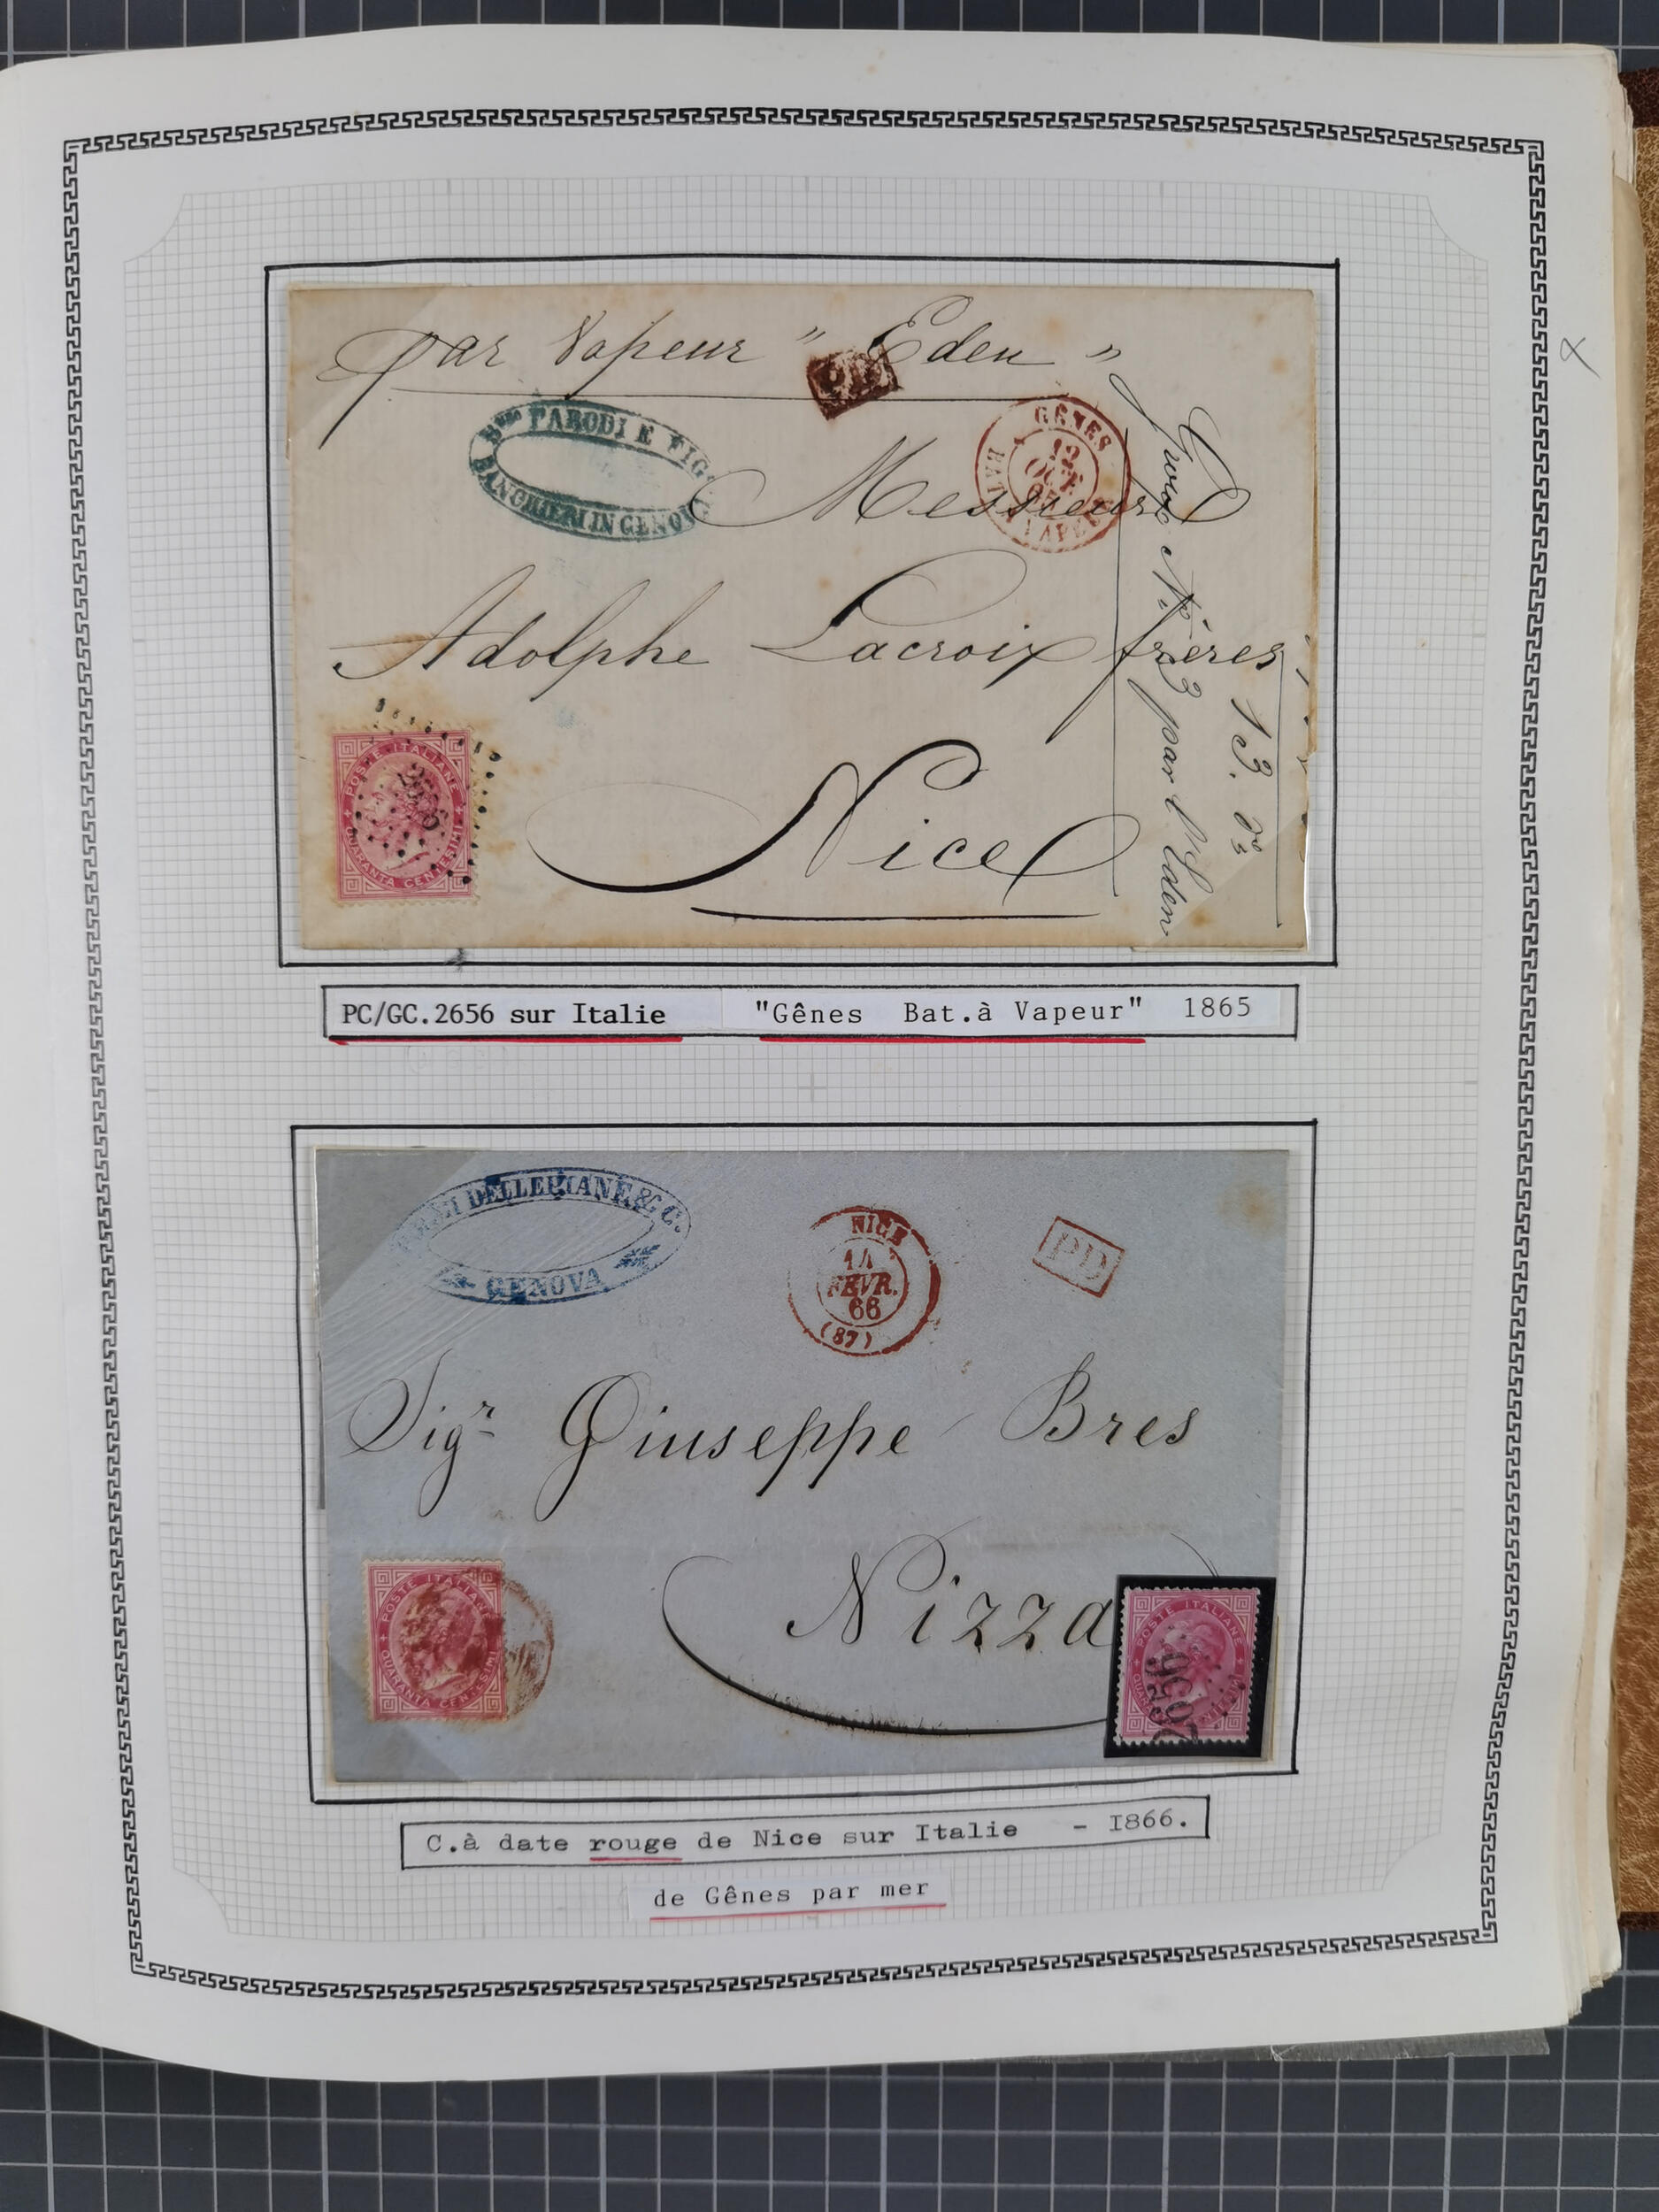 par Vapeur " Eden "
PD
Bmeo PARODI E FIG
BANCHIERI IN GENOV
GÊNES
12
OCT
65
BAT À VAPEUR
Messieurs
Adolphe Lacroix frères
Nice
13
par
Eden
POSTE ITALIANE
QUARANTA CENTESIMI
2656
PC/GC.2656 sur Italie "Gênes Bat.à Vapeur" 1865
DELLEPIANE & C.
GENOVA
NICE
14
FEVR.
66
(87)
PD
Sigr Giuseppe Bres
Nizza
POSTE ITALIANE
QUARANTA CENTESIMI
POSTE ITALIANE
2656
C.à date rouge de Nice sur Italie - I866.
de Gênes par mer